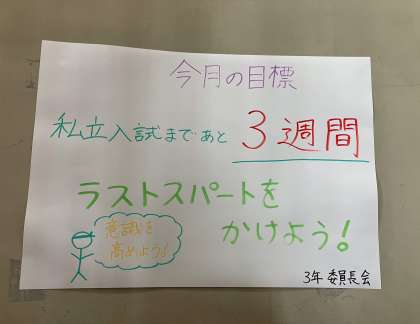 今月の目標
私立入試まであと 3週間
ラストスパートを
かけよう!
意識を
高めよう!
3年 委員長会